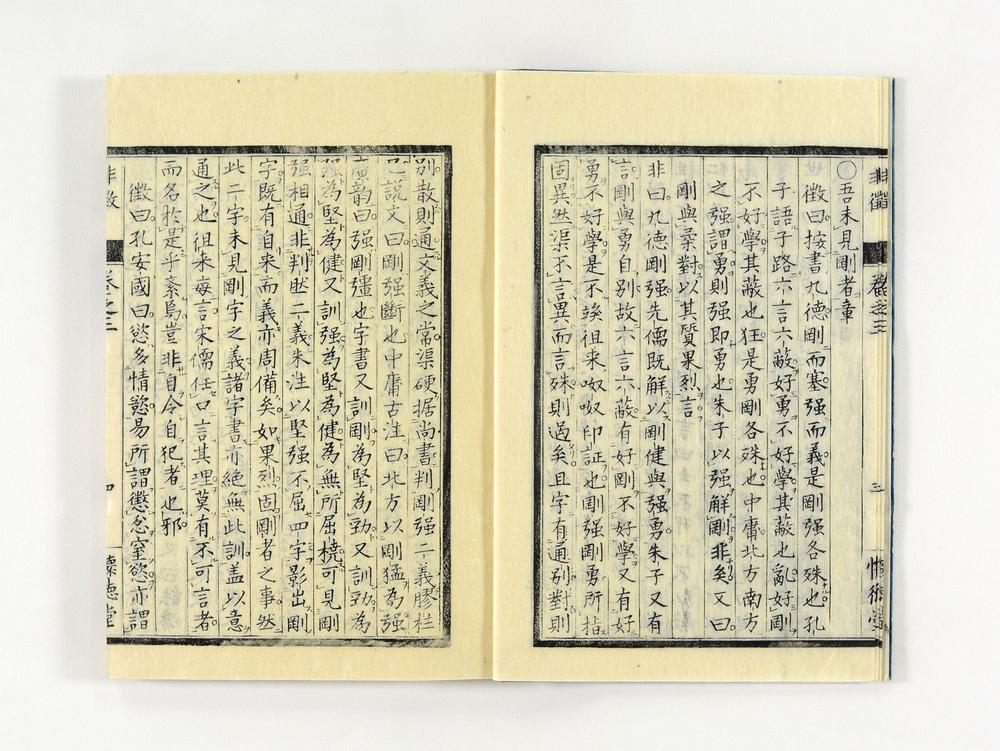 非徵 卷之三 三 懷德堂
〇吾未見剛者章
徵曰按書九德剛而塞强而義是剛强各殊也孔
子語子路六言六蔽好勇不好學其蔽也亂好剛
不好學其蔽也狂是勇剛各殊也中庸北方南方
之强謂勇則强即勇也朱子以强解剛非矣又曰
剛與柔對以其質果烈言
非曰九德剛强先儒既解以剛健與强勇朱子又有
言剛與勇自別故六言六蔽有好剛不好學又有好
勇不好學是不竢徂來呶呶印証也剛强剛勇所指
固異然渠不言異而言殊則過矣且字有通別對則
別散則通文義之常渠硬据尚書判剛强二義膠柱
已説文曰剛强斷也中庸古注曰北方以剛猛為强
廣韵曰强剛彊也字書又訓剛為堅為勁又訓勁為
强為堅為健又訓强為堅為健為無所屈撓可見剛
强相通非判然二義朱注以堅强不屈四字影出剛
字既有自来而義亦周備矣如果烈固剛者之事然
此二字未見剛字之義諸字書亦絶無此訓盖以意
通之也徂来每言宋儒任口言其理莫有不可言者
而名於是乎紊烏豈非自令自犯者也邪
徵曰孔安國曰慾多情慾易所謂懲忿窒慾亦謂
非徵 卷之三 四 懷德堂